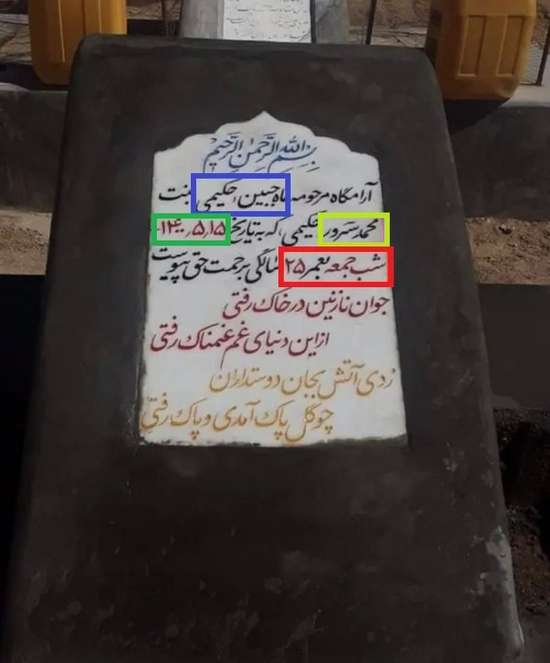 بسم الله الرحمن الرحیم
آرامگاه مرحومه ماه جبین حکیمی بنت
محمد سرور حکیمی که به تاریخ ۱۴۰۰٫۵٫۱۵
شب جمعه بعمر ۲۵ سالگی برحمت حق پیوست
جوان نازنین در خاک رفتی
از این دنیای غم غمناک رفتی
زدی آتش بجان دوستداران
چو گل پاک آمدی و پاک رفتی